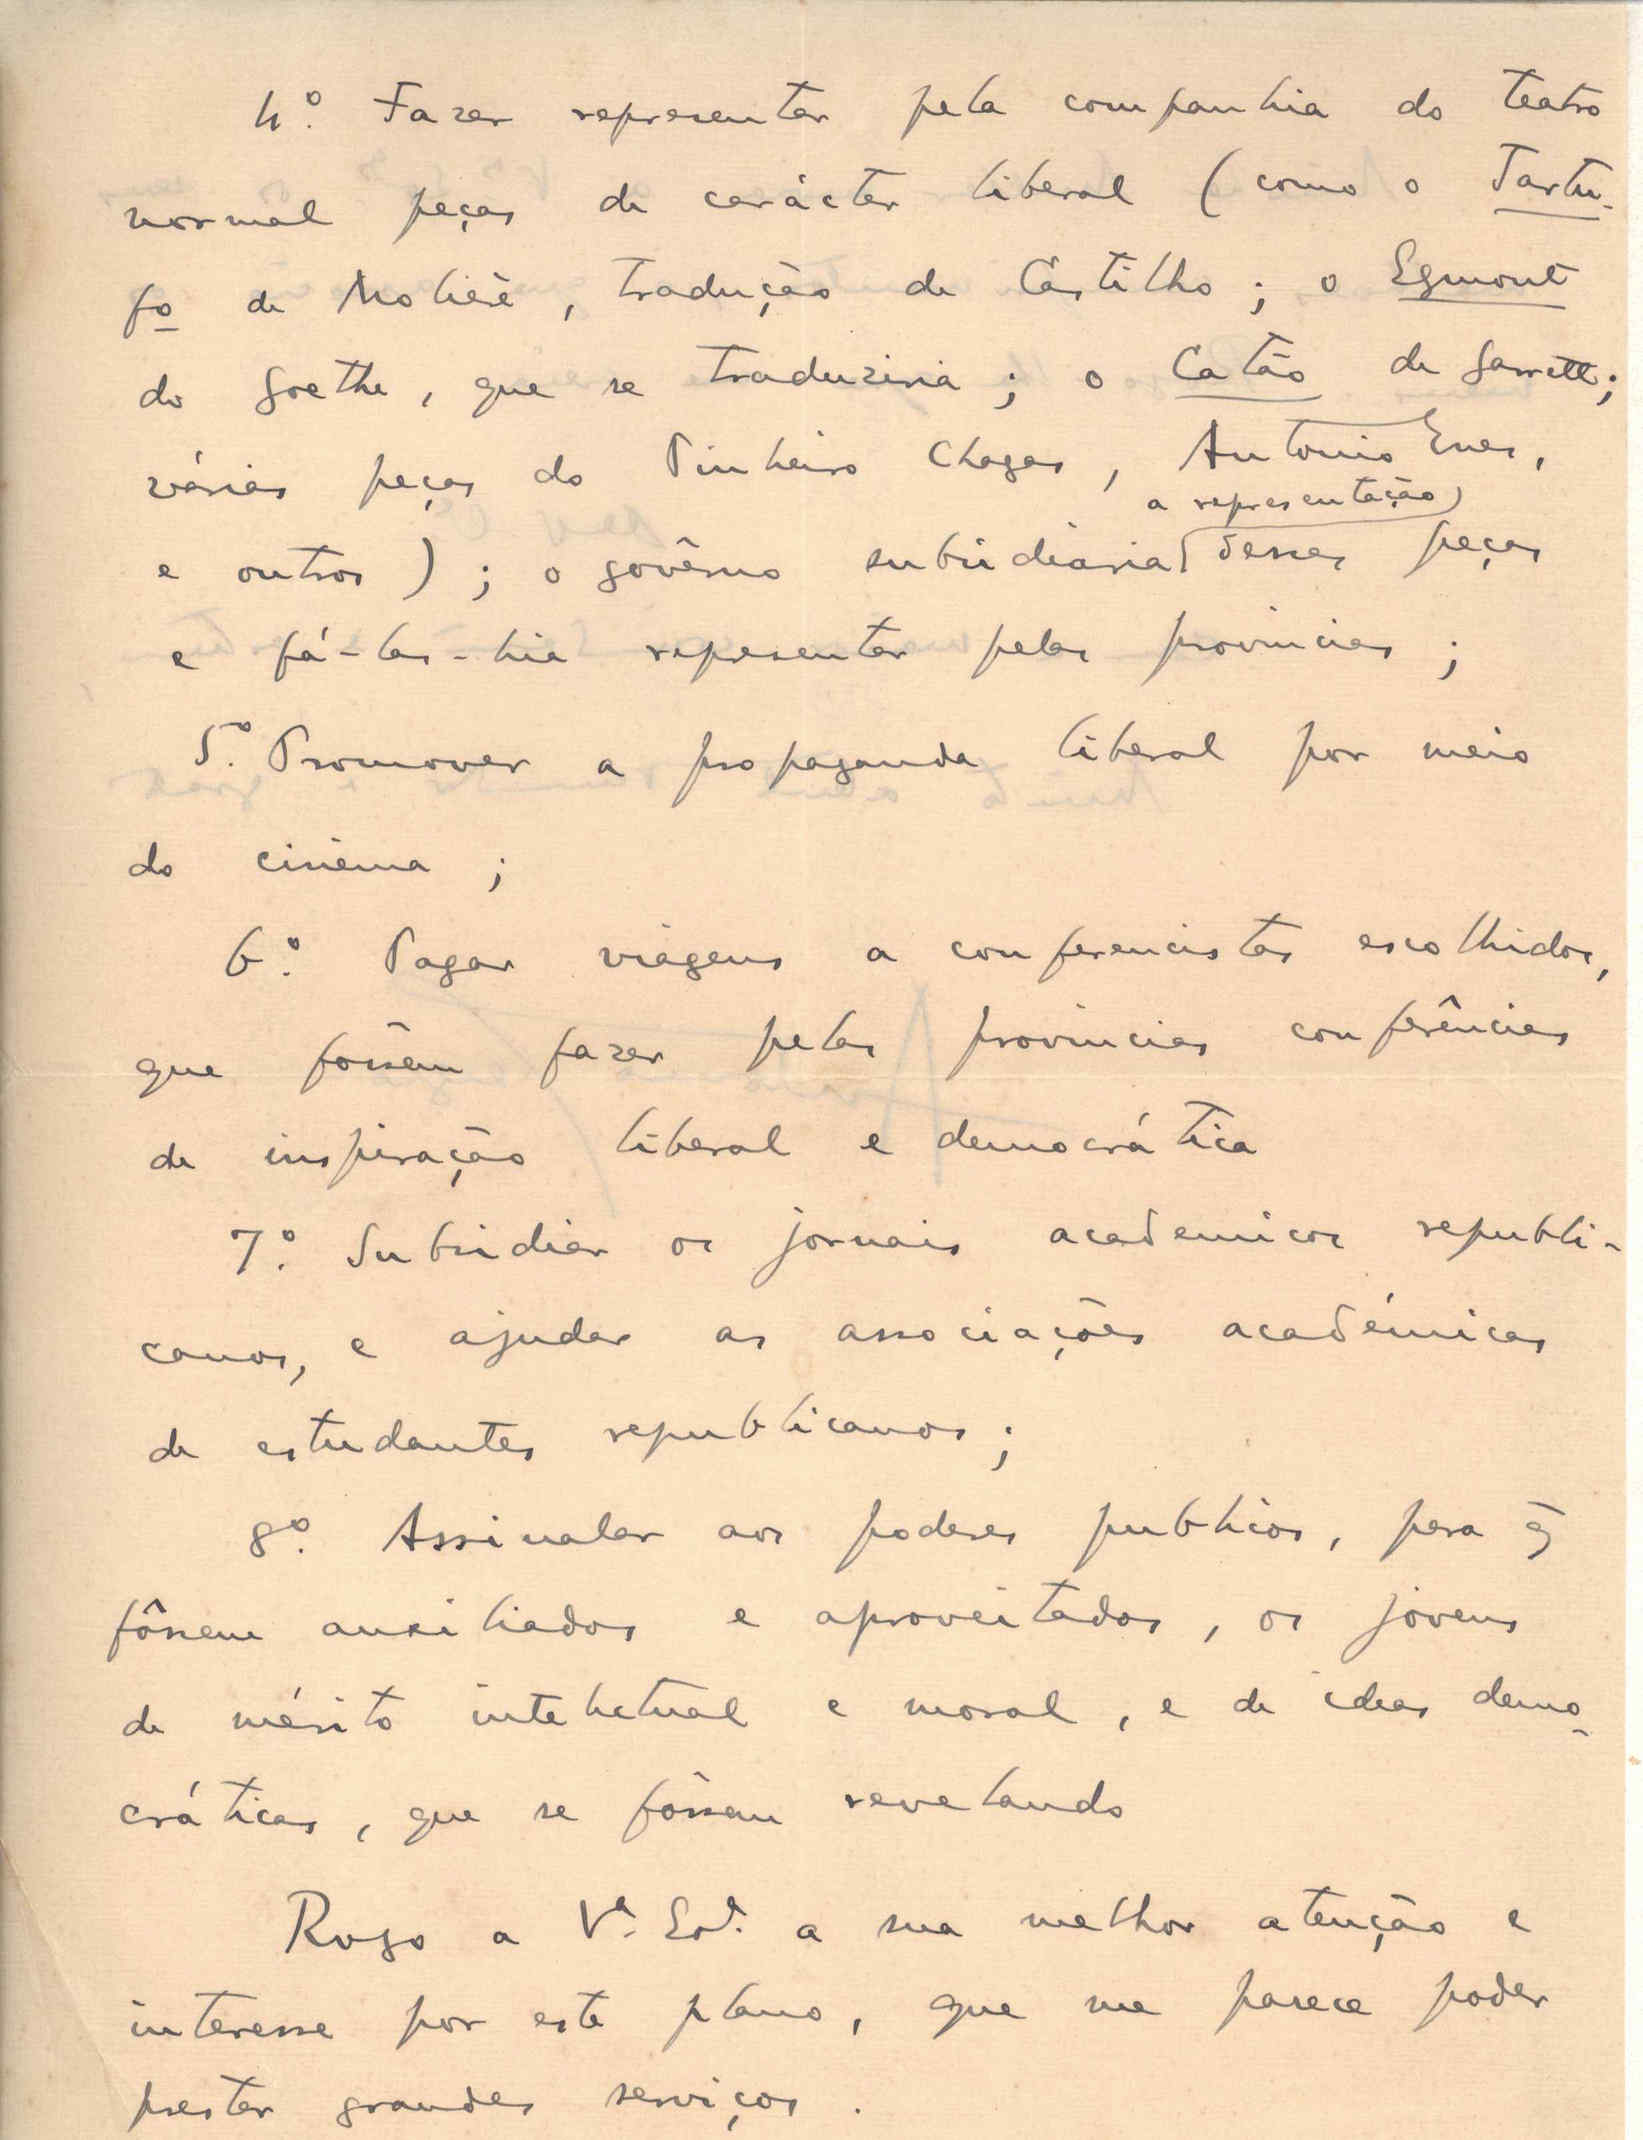 4º. Fazer representar pela companhia do teatro
normal peças de carácter liberal (como o Tartu-
fo de Molière, tradução de Castilho; o Egmont
do Goethe, que se traduziria; o Catão de Garrett;
várias peças do Pinheiro Chagas, Antonio Enes,
a representação
e outros); o govêrno subsidiaria dessas peças
e fá-las-hia representar pelas provincias;
5º. Promover a propaganda liberal por meio
do cinema;
6º. Pagar viagens a conferencistas escolhidos,
que fôssem fazer pelas provincias conferências
de inspiração liberal e democrática
7º. Subsidiar os jornais academicos republi-
canos, e ajudar as associações académicas
de estudantes republicanos;
8º. Assinalar aos poderes publicos, para q̃
fôssem auxiliados e aproveitados, os jovens
de mérito intelectual e moral, e de ideas demo-
cráticas, que se fôssem revelando
Rogo a Vª. Exª. a sua melhor atenção e
interesse por este plano, que me parece poder
prestar grandes serviços.